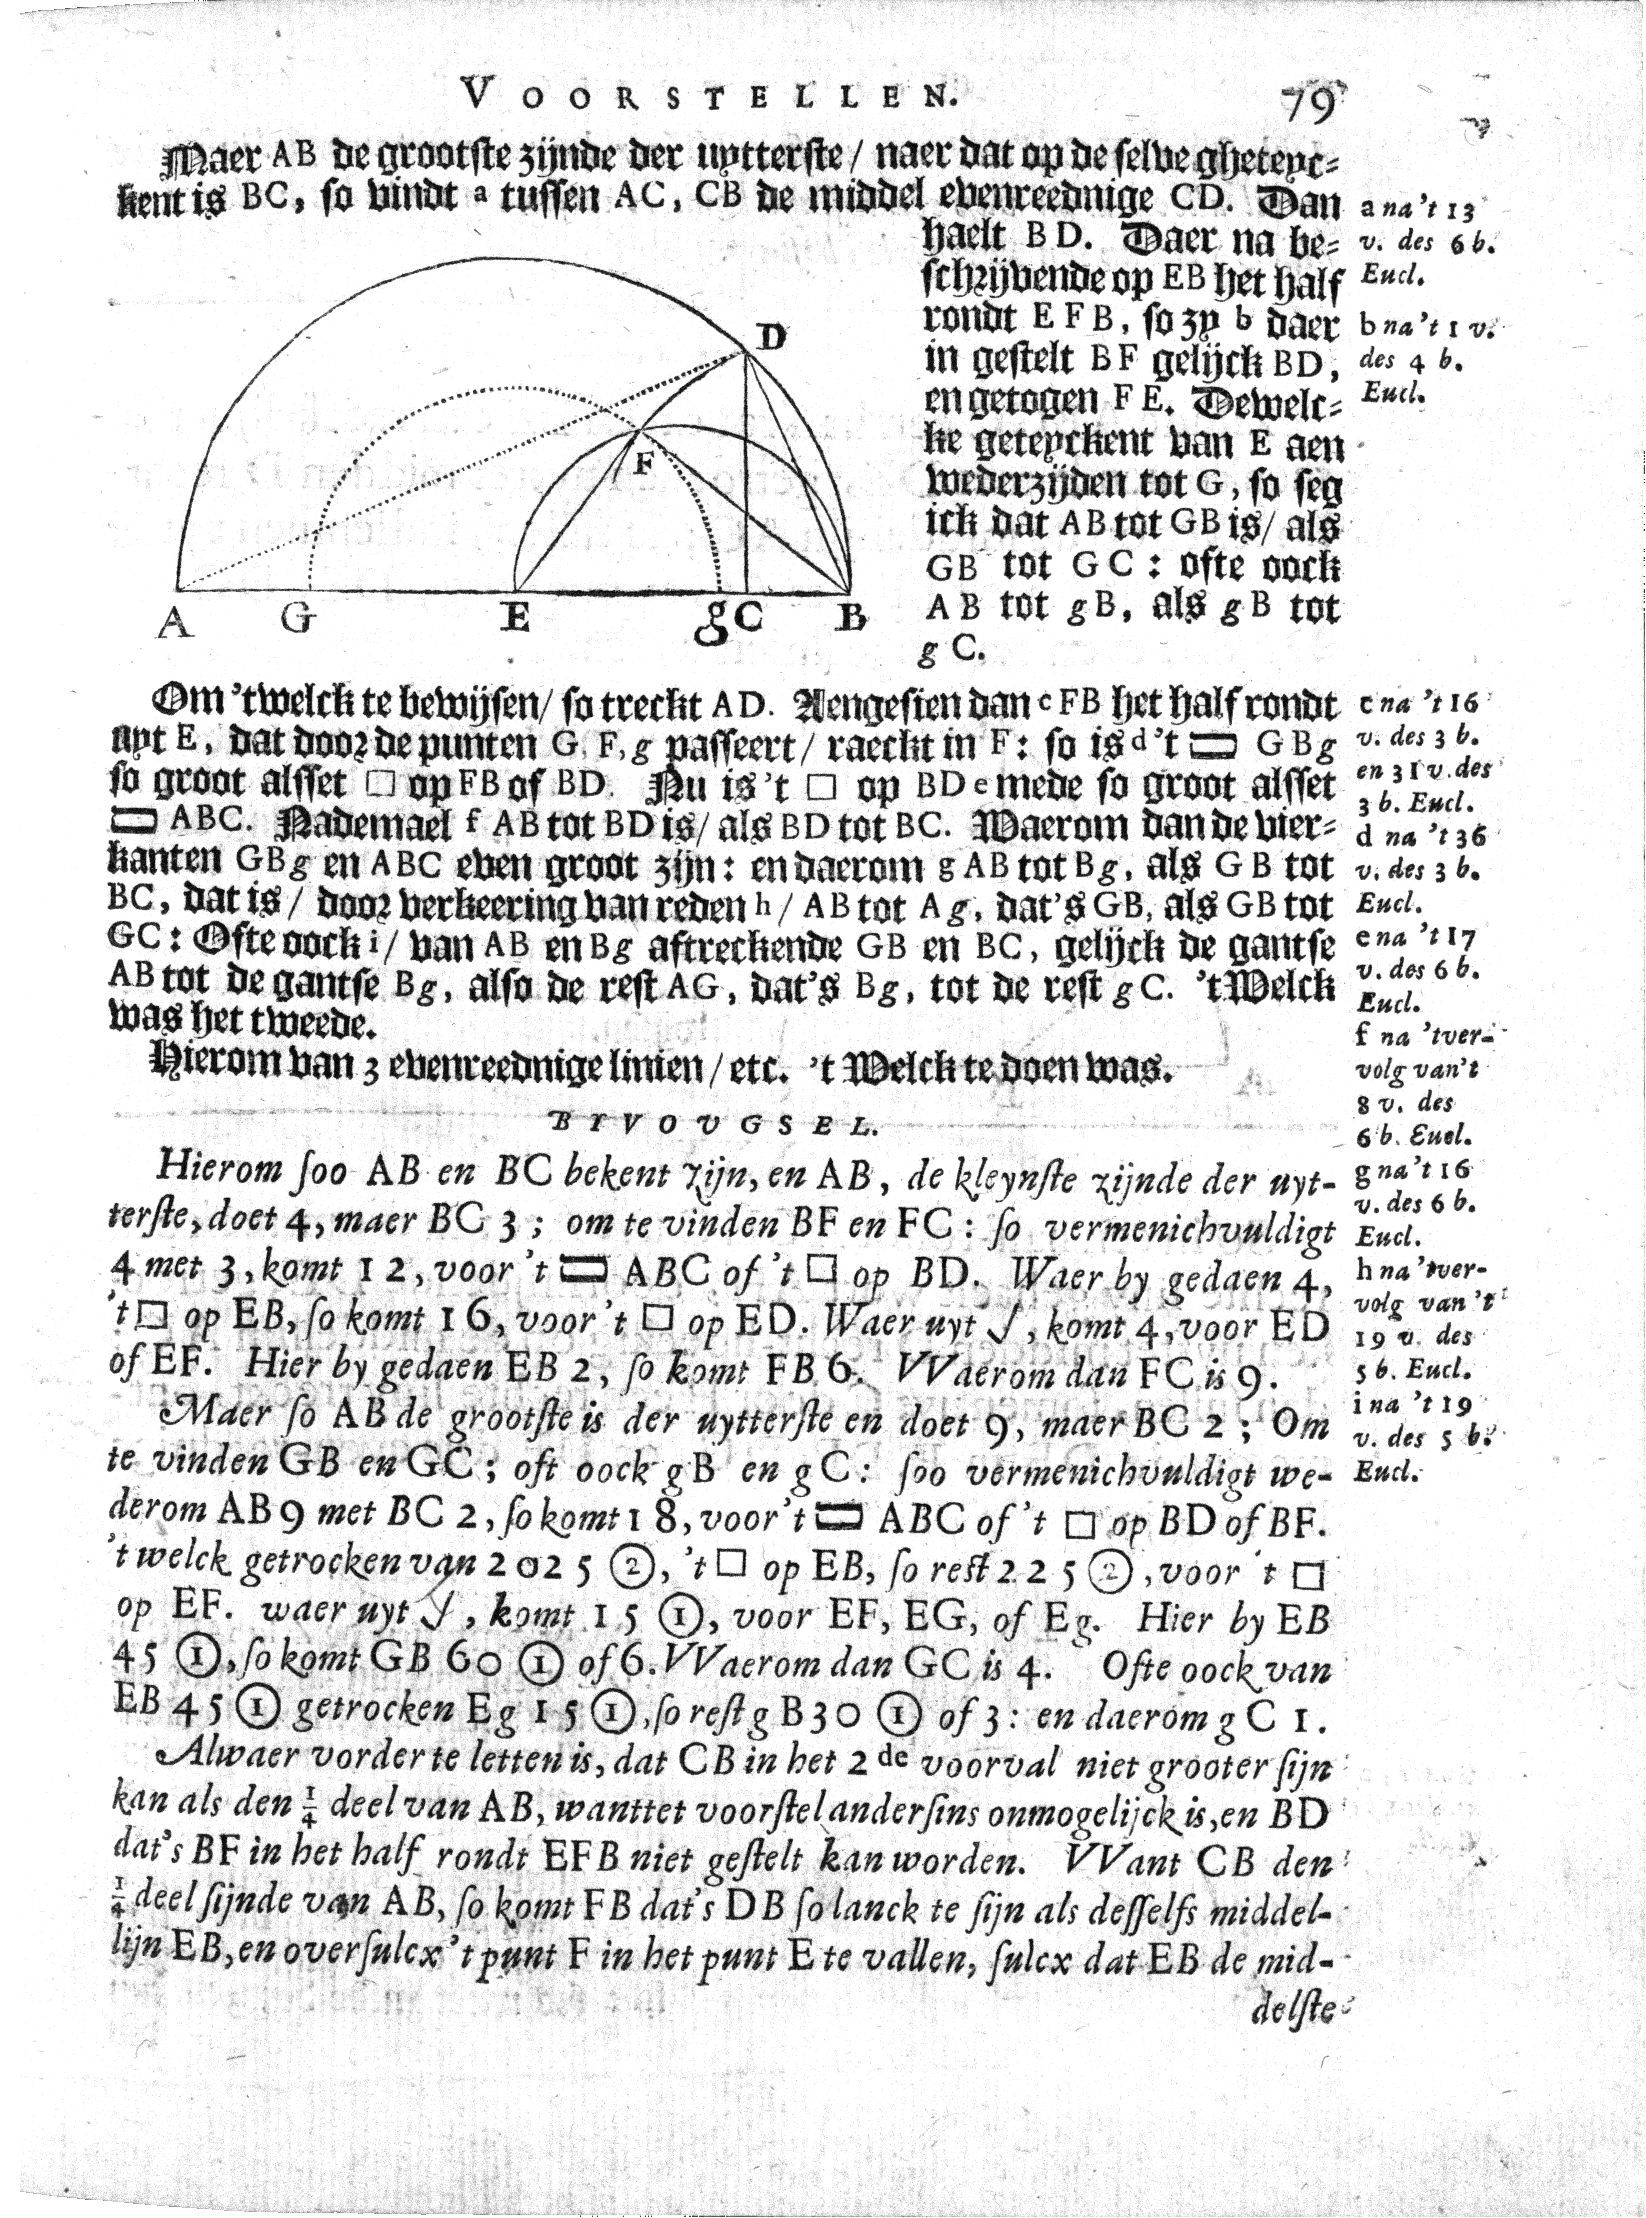 VOORSTELLEN. 79
Maer AB de grootste zijnde der uytterste / naer dat op de selve gheteyc-
kent is BC, so vindt a tussen AC, CB de middel evenreednige CD. Dan
haelt BD. Daer na be-
schrijvende op EB het half
rondt EFB, so zy b daer
in gestelt BF gelijck BD,
en getogen FE. Dewelc-
ke geteyckent van E aen
wederzijden tot G, so seg
ick dat AB tot GB is / als
GB tot GC : ofte oock
AB tot gB, als gB tot
gC.
a na 't 13
v. des 6 b.
Eucl.
b na 't 1 v.
des 4 b.
Eucl.
D
F
A G E g C B
Om 't welck te bewijsen / so treckt AD. Aengesien dan c FB het half rondt
uyt E, dat door de punten G, F, g passeert / raeckt in F : so is d 't ▭ GBg
so groot alsset □ op FB of BD. Nu is 't □ op BD e mede so groot alsset
▭ ABC. Nademael f AB tot BD is / als BD tot BC. Waerom dan de vier-
kanten GBg en ABC even groot zijn : en daerom g AB tot Bg, als GB tot
BC, dat is / door verkeering van reden h / AB tot Ag, dat's GB, als GB tot
GC : Ofte oock i / van AB en Bg aftreckende GB en BC, gelijck de gantse
AB tot de gantse Bg, also de rest AG, dat's Bg, tot de rest gC. 't Welck
was het tweede.
Hierom van 3 evenreednige linien / etc. 't Welck te doen was.
c na 't 16
v. des 3 b.
en 31 v. des
3 b. Eucl.
d na 't 36
v. des 3 b.
Eucl.
e na 't 17
v. des 6 b.
Eucl.
f na 't ver-
volg van 't
8 v. des
6 b. Eucl.
g na 't 16
v. des 6 b.
Eucl.
h na 't ver-
volg van 't
19 v. des
5 b. Eucl.
i na 't 19
v. des 5 b.
Eucl.
BYVOUGSEL.
Hierom ſoo AB en BC bekent zijn, en AB, de kleynſte zijnde der uyt-
terſte, doet 4, maer BC 3 ; om te vinden BF en FC : ſo vermenichvuldigt
4 met 3, komt 12, voor 't ▭ ABC of 't □ op BD. Waer by gedaen 4,
't □ op EB, ſo komt 16, voor 't □ op ED. Waer uyt √, komt 4, voor ED
of EF. Hier by gedaen EB 2, ſo komt FB 6. VVaerom dan FC is 9.
Maer ſo AB de grootſte is der uytterſte en doet 9, maer BC 2 ; Om
te vinden GB en GC ; oft oock gB en gC : ſoo vermenichvuldigt we-
derom AB 9 met BC 2, ſo komt 18, voor 't ▭ ABC of 't □ op BD of BF.
't welck getrocken van 2025 ②, 't □ op EB, ſo reſt 225 ②, voor 't □
op EF. waer uyt √, komt 15 ①, voor EF, EG, of Eg. Hier by EB
45 ①, ſo komt GB 60 ① of 6. VVaerom dan GC is 4. Ofte oock van
EB 45 ① getrocken Eg 15 ①, ſo reſt gB 30 ① of 3 : en daerom gC 1.
Alwaer vorder te letten is, dat CB in het 2de voorval niet grooter ſijn
kan als den 1/4 deel van AB, wanttet voorſtel anderſins onmogelijck is, en BD
dat's BF in het half rondt EFB niet geſtelt kan worden. VVant CB den
1/4 deel ſijnde van AB, ſo komt FB dat's DB ſo lanck te ſijn als deſſelfs middel-
lijn EB, en overſulcx 't punt F in het punt E te vallen, ſulcx dat EB de mid-
delſte